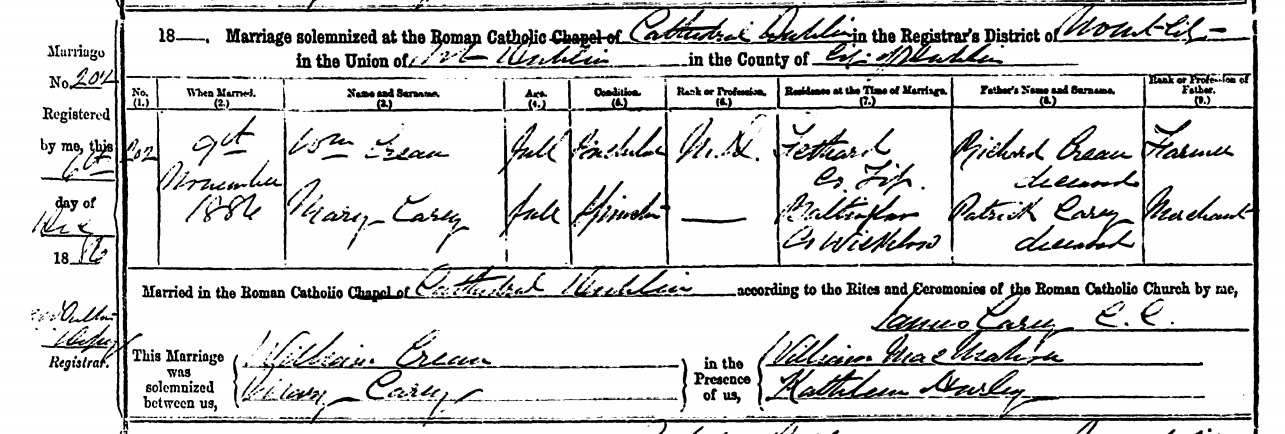 18__. Marriage solemnized at the Roman Catholic Chapel of Cathedral Dublin in the Registrar's District of
in the Union of Dublin in the County of City of Dublin
Marriage
No. 202
Registered
by me, this
6th
day of
Dec
1886
Registrar.
No. (1.) When Married. (2.) Name and Surname. (3.) Age. (4.) Condition. (5.) Rank or Profession. (6.) Residence at the Time of Marriage. (7.) Father's Name and Surname. (8.) Rank or Profession of Father. (9.)
202 9th Wm Crean full Bachelor M.D. Fethard Richard Crean Farmer
November Co Tip. deceased
1886 Mary Carey full Spinster — Baltinglass Patrick Carey Merchant
Co Wicklow deceased
Married in the Roman Catholic Chapel of Cathedral Dublin according to the Rites and Ceremonies of the Roman Catholic Church by me,
James Carey C.C.
This Marriage was solemnized between us,
William Crean
Mary Carey
in the Presence of us,
William MacMahon
Kathleen Hurley